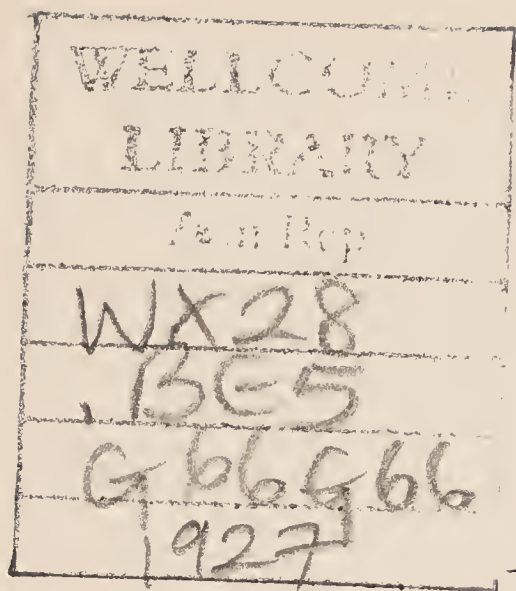 WELLCOME
LIBRARY
WX28
.BE5
G66G66
1927